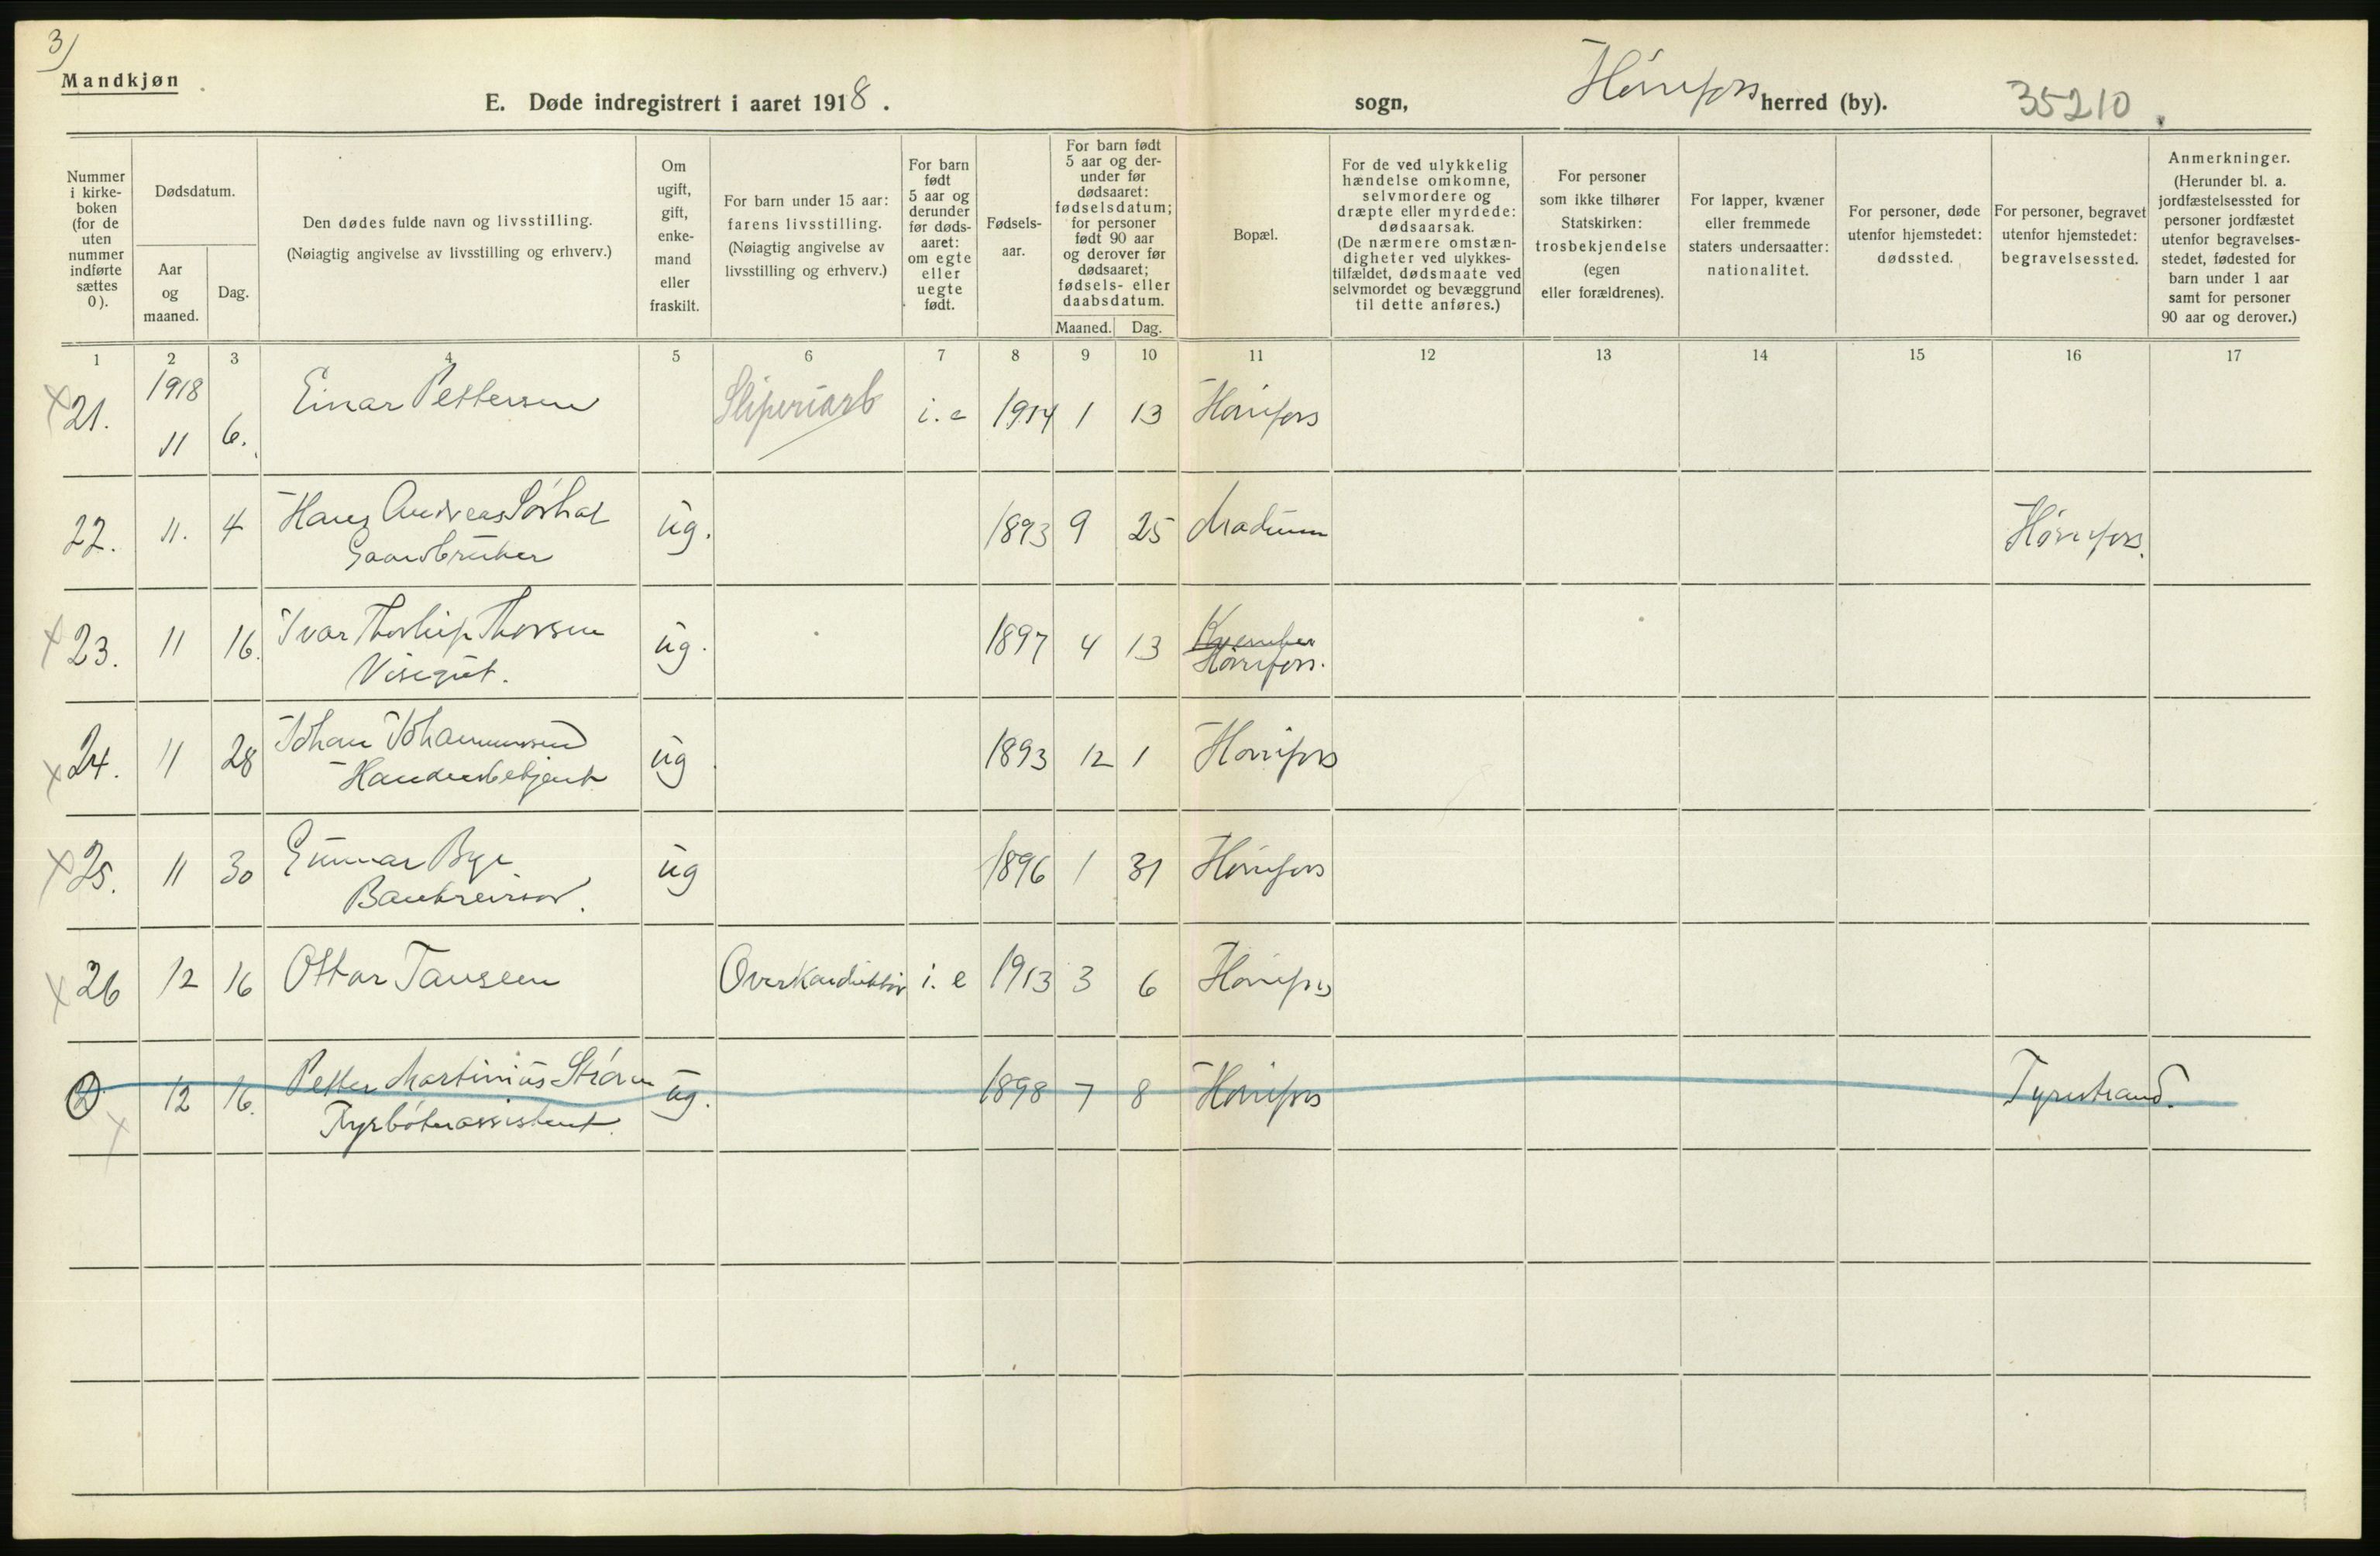 3)
Mandkjøn
E. Døde indregistrert i aaret 1918.
sogn, Hønefoss herred (by). 35210.
Nummer i kirkeboken (for de uten nummer indførte sættes 0).
Dødsdatum.
Aar og maaned.
Dag.
Den dødes fulde navn og livsstilling.
(Nøiagtig angivelse av livsstilling og erhverv.)
Om ugift, gift, enkemand eller fraskilt.
For barn under 15 aar: farens livsstilling.
(Nøiagtig angivelse av livsstilling og erhverv.)
For barn født 5 aar og derunder før dødsaaret: om egte eller uegte født.
Fødselsaar.
For barn født 5 aar og derunder før dødsaaret: fødselsdatum; for personer født 90 aar og derover før dødsaaret; fødsels- eller daabsdatum.
Maaned. Dag.
Bopæl.
For de ved ulykkelig hændelse omkomne, selvmordere og dræpte eller myrdede: dødsaarsak.
(De nærmere omstændigheter ved ulykkestilfældet, dødsmaate ved selvmordet og bevæggrund til dette anføres.)
For personer som ikke tilhører Statskirken: trosbekjendelse (egen eller forældrenes).
For lapper, kvæner eller fremmede staters undersaatter: nationalitet.
For personer, døde utenfor hjemstedet: dødssted.
For personer, begravet utenfor hjemstedet: begravelsessted.
Anmerkninger.
(Herunder bl. a. jordfæstelsessted for personer jordfæstet utenfor begravelsesstedet, fødested for barn under 1 aar samt for personer 90 aar og derover.)
1 2 3 4 5 6 7 8 9 10 11 12 13 14 15 16 17
1918
21. 11 6. Einar Pettersen Sliperiarb i. e 1914 1 13 Hønefoss
22. 11. 4 Hans Andreas ug. 1893 9 25 Modum Hønefoss.
Gaardbruker
23. 11 16. Ivar Thorleif Thorsen ug. 1897 4 13
Visegut. Hønefoss.
24. 11 28 Johan Johannessen ug. 1893 12 1 Hønefoss
Handelsbetjent
25. 11 30 Gunnar Bye ug 1896 1 31 Hønefoss
Bankrevisor.
26 12 16 Ottar Tansem Overkonduktør i. e 1913 3 6 Hønefoss
12 16. Petter Martinius Strøm ug. 1898 7 8 Hønefoss Tyristrand.
Fyrbøterassistent.